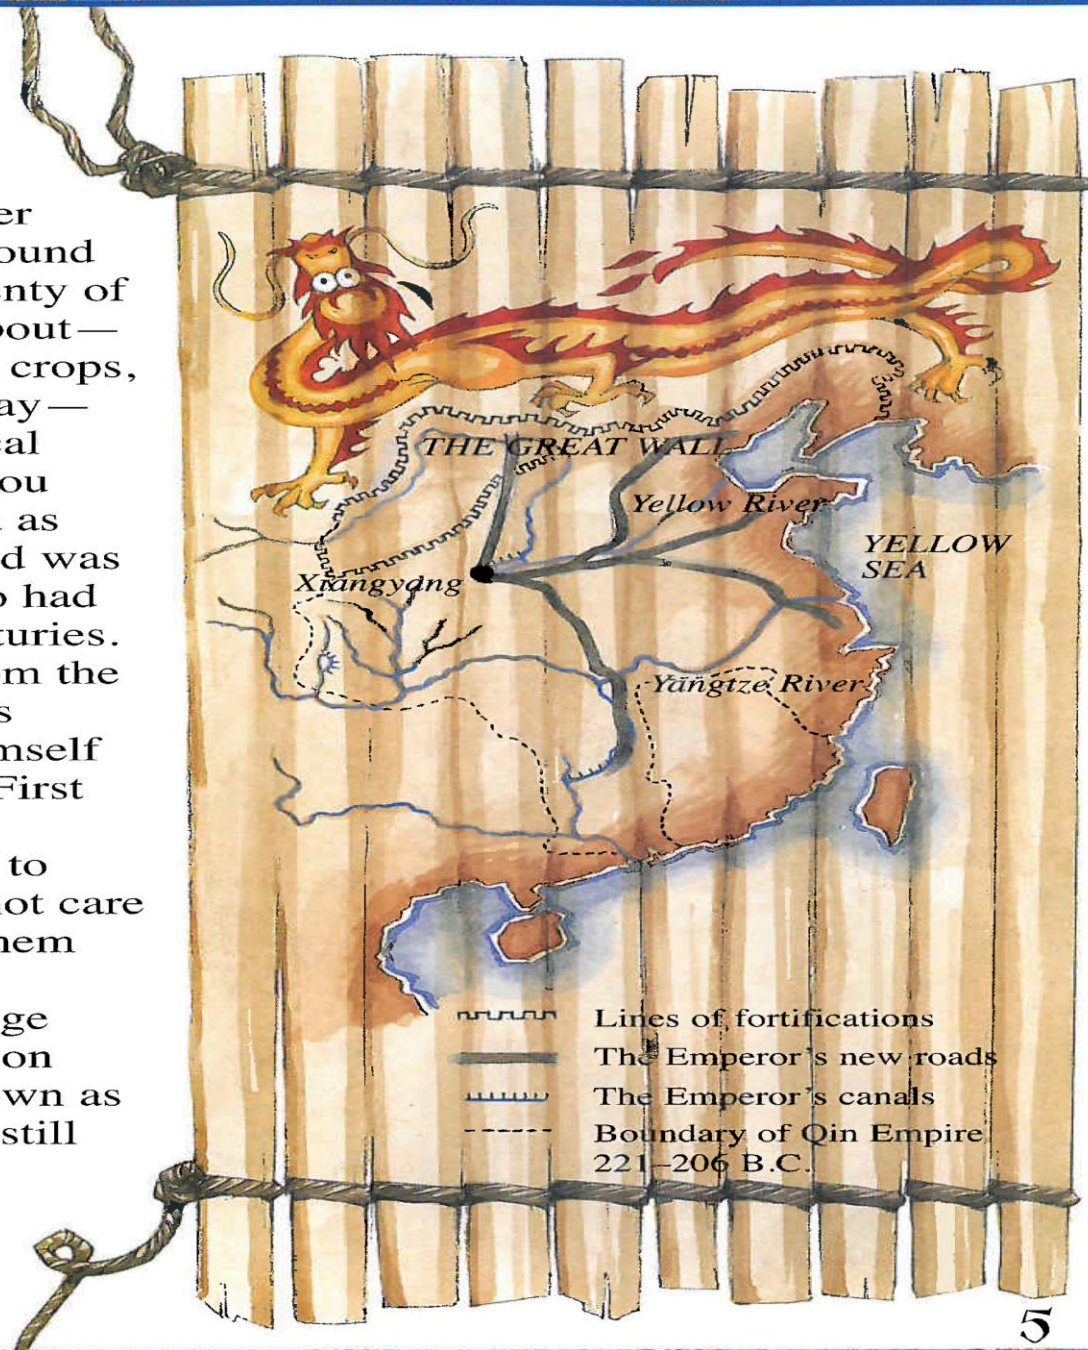 er
ound
enty of
bout—
crops,
ay—
cal
ou
as
d was
had
turies.
om the
s
mself
First
to
not care
hem
ge
on
wn as
still
THE GREAT WALL
Yellow River
YELLOW
SEA
Xiangyang
Yangtze River
Lines of fortifications
The Emperor's new roads
The Emperor's canals
Boundary of Qin Empire
221–206 B.C.
5